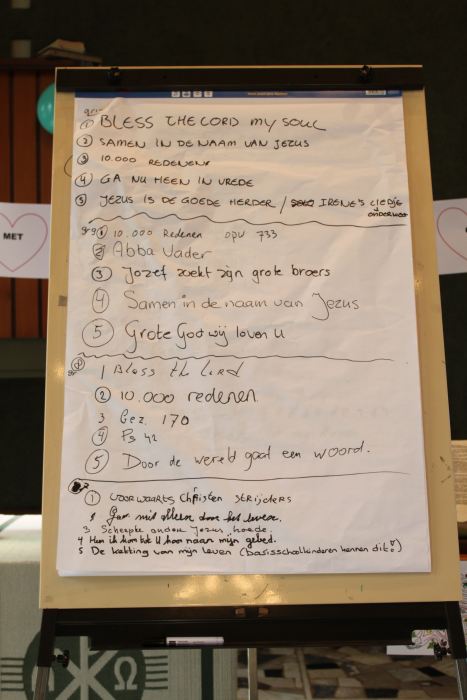 ① BLESS THE LORD MY SOUL
② SAMEN IN DE NAAM VAN JEZUS
③ 10.000 REDENENE
④ GA NU HEEN IN VREDE
⑤ JEZUS IS DE GOEDE HERDER / IRENE'S LIEDJE
onderweg
① 10.000 Redenen OPW 733
② Abba Vader
③ Jozef zoekt zijn grote broers
④ Samen in de naam van Jezus
⑤ Grote God wij loven U
1 Bless the Lord
② 10.000 redenen
3 Gez. 170
④ Ps 42
⑤ Door de wereld gaat een woord.
① VOORWAARTS CHRISTEN STRIJDERS
2 Ga niet alleen door het leven.
3 Scheepke onder Jezus hoede.
4 Heer ik kom tot U hoor naar mijn gebed.
5 De ketting van mijn leven (basisschoolkinderen kennen dit!)
MET